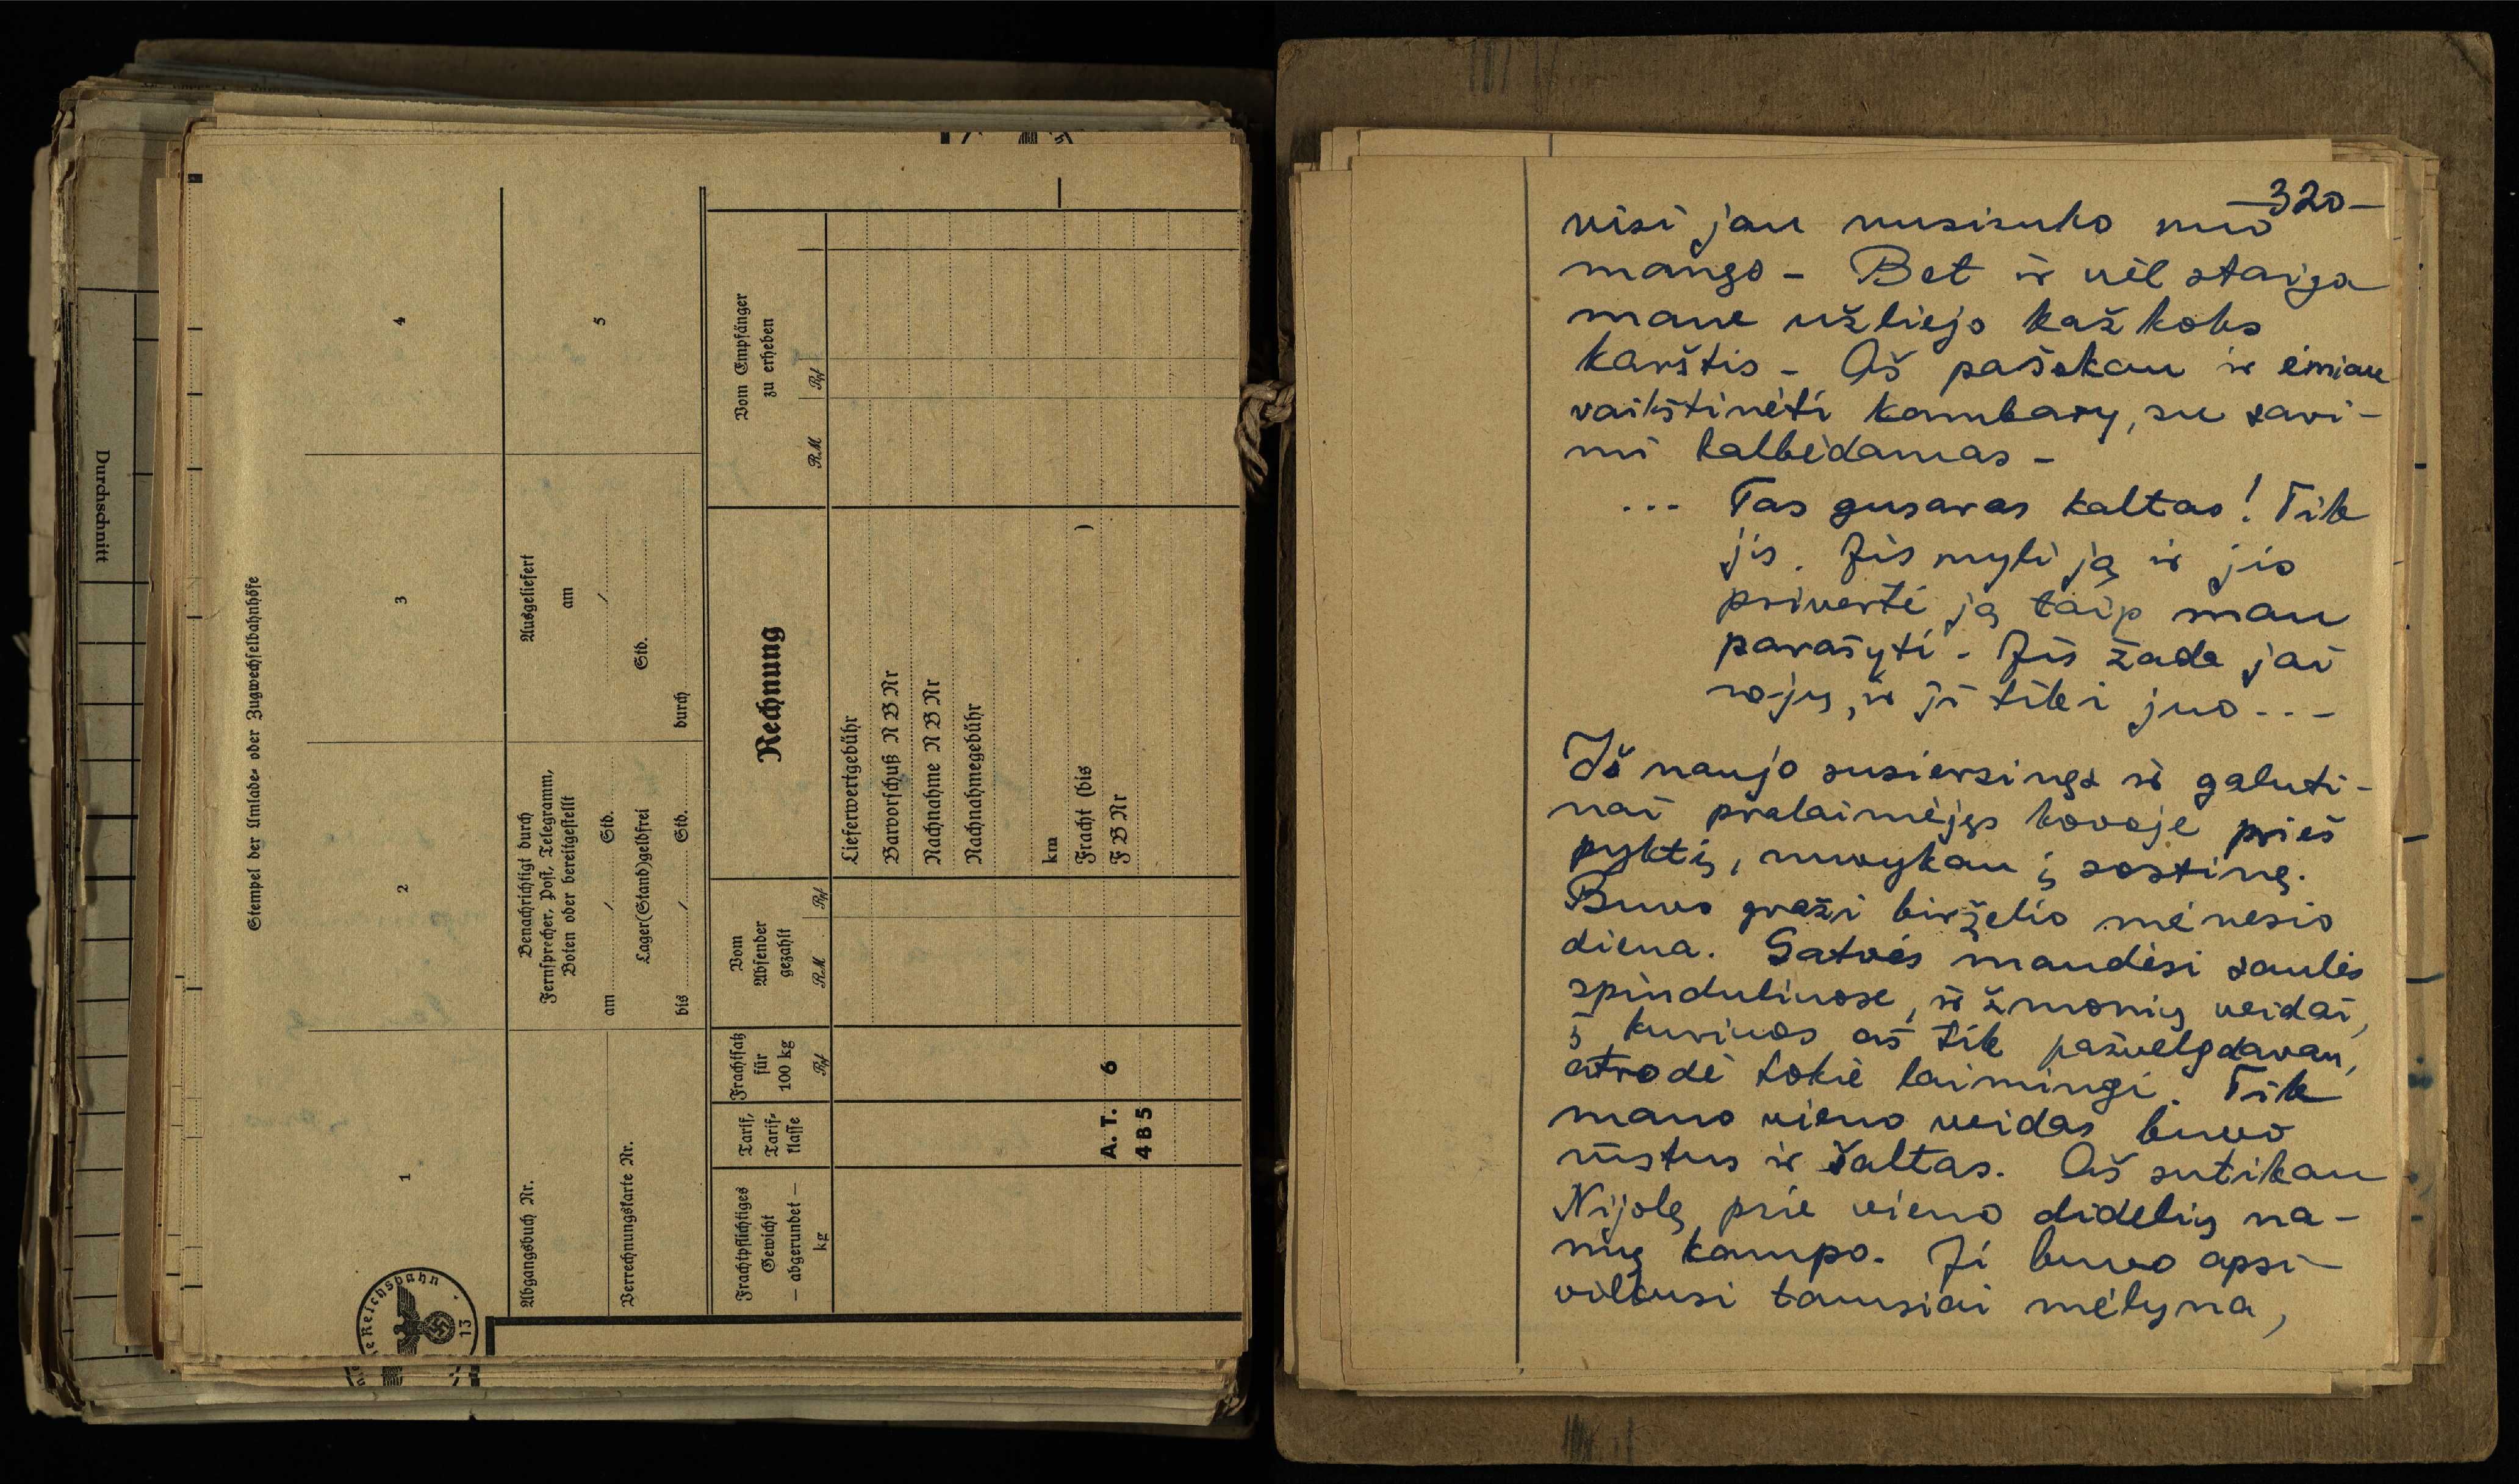 Durchschnitt
Stempel der Umlade- oder Zugwechselbahnhöfe
1
2
3
4
Abgangsbuch Nr.
Verrechnungskarte Nr.
Benachrichtigt durch
Fernsprecher, Post, Telegramm,
Boten oder bereitgestellt
am / Std.
Lager(Stand)geldfrei
bis / Std.
Ausgeliefert
am
/
Std.
durch
5
Frachtpflichtiges
Gewicht
— abgerundet —
kg
Tarif,
Tarif-
klasse
Frachtsatz
für
100 kg
Rpf
Vom
Absender
gezahlt
RM Rpf
Rechnung
Vom Empfänger
zu erheben
RM Rpf
Lieferwertgebühr
Barvorschuß N B Nr
Nachnahme N B Nr
Nachnahmegebühr
km
Fracht (bis )
A. T. 6
F B Nr
4 B 5
Reichsbahn
13
—320—
visi jau nusisuko nuo
manęs – Bet ir vėl staiga
mane užliejo kažkoks
karštis – Aš pašokau ir ėmiau
vaikštinėti kambary, su savi-
mi kalbėdamas –
... Tas gusaras kaltas! Tik
jis. Jis myli ją ir jis
privertė ją taip man
parašyti. Jis žada jai
rojų, ir ji tiki juo...
Iš naujo susierzinęs ir galuti-
nai pralaimėjęs kovoje prieš
pyktį, nuvykau į sostinę.
Buvo graži birželio mėnesio
diena. Gatvės maudėsi saulės
spinduliuose, ir žmonių veidai,
į kuriuos aš tik pažvelgdavau,
atrodė tokie laimingi. Tik
mano vieno veidas buvo
rūstus ir šaltas. Aš sutikau
Nijolę prie vieno didelių na-
mų kampo. Ji buvo apsi-
vilkusi tamsiai mėlyna,